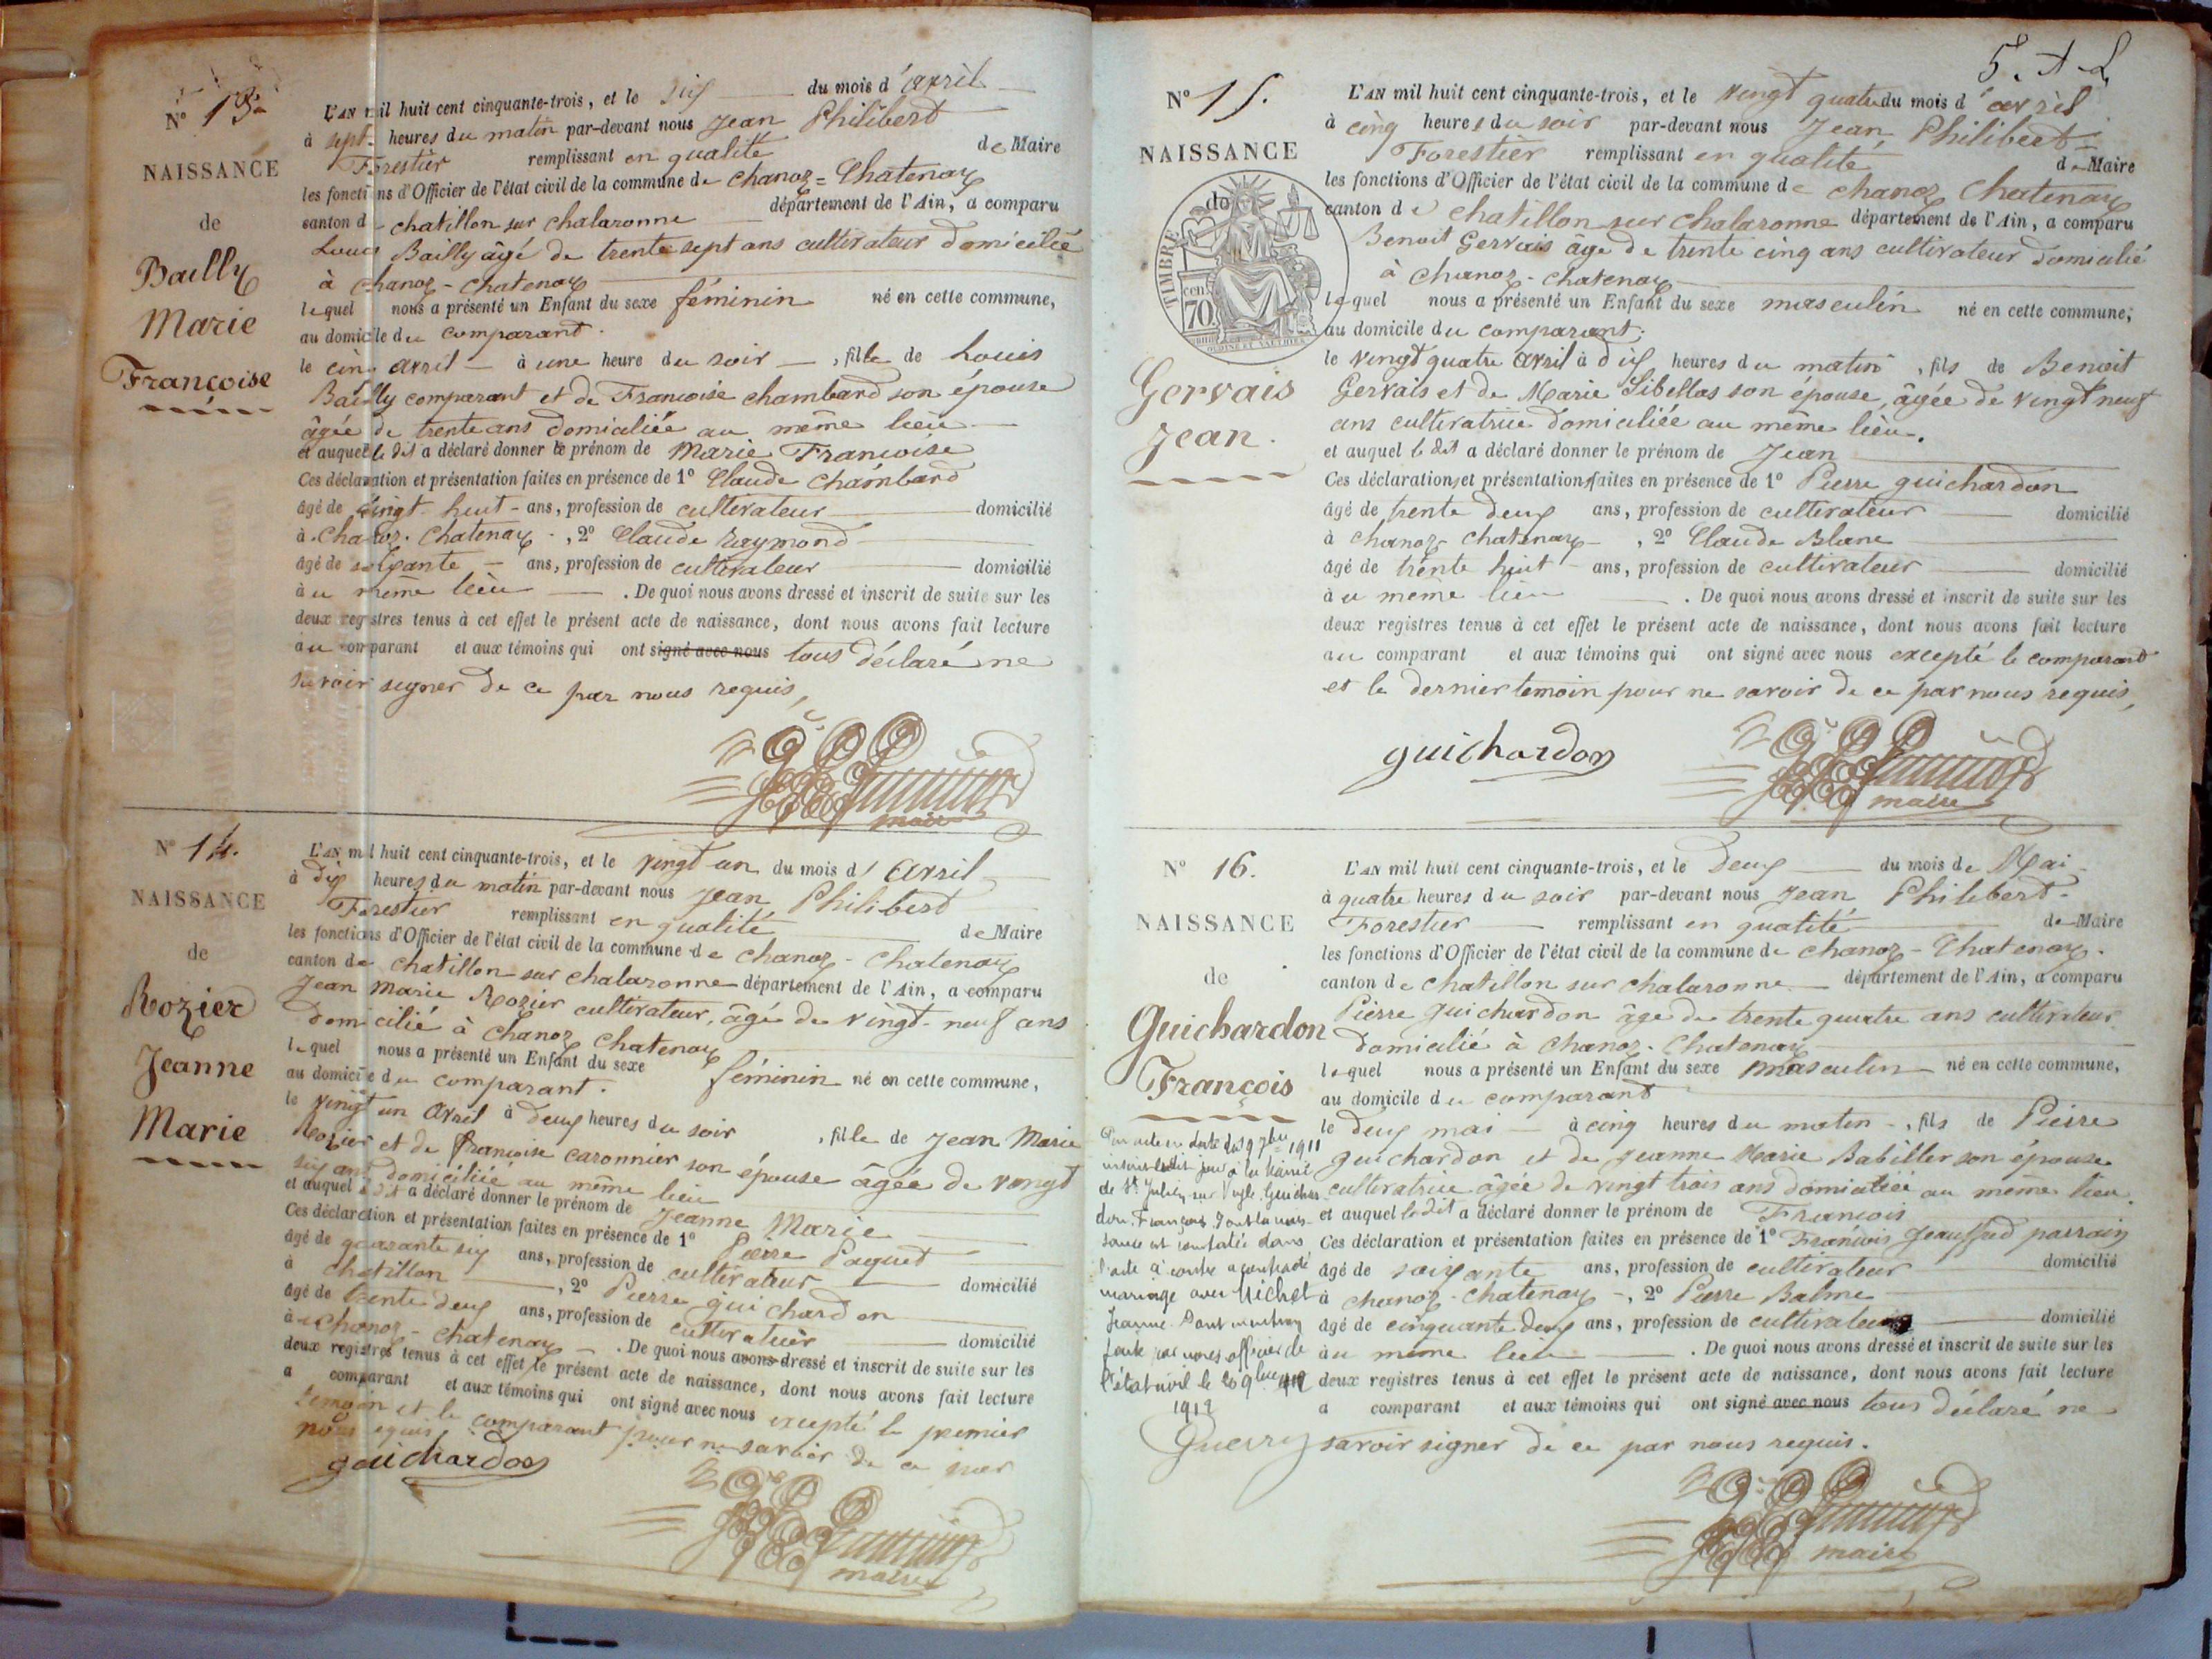 N° 13.
NAISSANCE
de
Bailly
Marie
Françoise
L'AN mil huit cent cinquante-trois, et le six du mois d'avril
à sept heures du matin par-devant nous Jean Philibert
Forestier remplissant en qualité de Maire
les fonctions d'Officier de l'état civil de la commune de Chanoz=Chatenay
canton de chatillon sur chalaronne département de l'Ain, a comparu
Louis Bailly âgé de trente sept ans cultivateur domicilié
à Chanoz-Chatenay
lequel nous a présenté un Enfant du sexe féminin né en cette commune,
au domicile du comparant.
le cinq avril à une heure du soir, fille de Louis
Bailly comparant et de Francoise chambard son épouse
âgée de trente ans domiciliée au même lieu
et auquel le dit a déclaré donner le prénom de Marie Francoise
Ces déclaration et présentation faites en présence de 1° Claude Chambard
âgé de vingt-huit ans, profession de cultivateur domicilié
à Chanoz. Chatenay, 2° Claude Raymond
âgé de soixante ans, profession de cultivateur domicilié
au même lieu. De quoi nous avons dressé et inscrit de suite sur les
deux registres tenus à cet effet le présent acte de naissance, dont nous avons fait lecture
au comparant et aux témoins qui ont signé avec nous tous déclaré ne
savoir signer de ce par nous requis,
maire
N° 14.
NAISSANCE
de
Rozier
Jeanne
Marie
L'AN mil huit cent cinquante-trois, et le vingt un du mois d'Avril
à dix heures du matin par-devant nous Jean Philibert
Forestier remplissant en qualité de Maire
les fonctions d'Officier de l'état civil de la commune de Chanoz-Chatenay
canton de chatillon sur chalaronne département de l'Ain, a comparu
Jean Marie Rozier cultivateur, âgé de vingt-neuf ans
domicilié à Chanoz Chatenay
lequel nous a présenté un Enfant du sexe féminin né en cette commune,
au domicile du comparant.
le vingt un avril à deux heures du soir, fille de Jean Marie
Rozier et de francoise caronnier son épouse âgée de vingt
six ans domiciliée au même lieu
et auquel le dit a déclaré donner le prénom de Jeanne Marie
Ces déclaration et présentation faites en présence de 1° Pierre Paquet
âgé de quarante six ans, profession de cultivateur domicilié
à Chatillon, 2° Pierre guichardon
âgé de trente deux ans, profession de cultivateur domicilié
à Chanoz-Chatenay. De quoi nous avons dressé et inscrit de suite sur les
deux registres tenus à cet effet le présent acte de naissance, dont nous avons fait lecture
a comparant et aux témoins qui ont signé avec nous excepté le premier
temoin et le comparant pour ne savoir de ce par
nous requis
guichardon
maire
5.
N° 15.
NAISSANCE
de
TIMBRE
70 cen
Gervais
Jean.
L'AN mil huit cent cinquante-trois, et le vingt quatre du mois d'avril
à cinq heures du soir par-devant nous Jean Philibert
Forestier remplissant en qualité de Maire
les fonctions d'Officier de l'état civil de la commune de chanoz Chatenay
canton de chatillon sur chalaronne département de l'Ain, a comparu
Benoit Gervais âgé de trente cinq ans cultivateur domicilié
à Chanoz-Chatenay
lequel nous a présenté un Enfant du sexe masculin né en cette commune,
au domicile du comparant.
le vingt quatre avril à dix heures du matin, fils de Benoit
Gervais et de Marie Sibellas son épouse, âgée de vingt neuf
ans cultivatrice domiciliée au même lieu.
et auquel le dit a déclaré donner le prénom de Jean
Ces déclaration et présentation faites en présence de 1° Pierre guichardon
âgé de trente deux ans, profession de cultivateur domicilié
à Chanoz Chatenay, 2° Claude Blanc
âgé de trente huit ans, profession de cultivateur domicilié
au même lieu. De quoi nous avons dressé et inscrit de suite sur les
deux registres tenus à cet effet le présent acte de naissance, dont nous avons fait lecture
au comparant et aux témoins qui ont signé avec nous excepté le comparant
et le dernier temoin pour ne savoir de ce par nous requis,
guichardon
maire
N° 16.
NAISSANCE
de
Guichardon
François
L'AN mil huit cent cinquante-trois, et le deux du mois de Mai
à quatre heures du soir par-devant nous Jean Philibert
Forestier remplissant en qualité de Maire
les fonctions d'Officier de l'état civil de la commune de Chanoz-Chatenay.
canton de Chatillon sur chalaronne département de l'Ain, a comparu
Pierre guichardon âgé de trente quatre ans cultivateur
domicilié à Chanoz-Chatenay
lequel nous a présenté un Enfant du sexe masculin né en cette commune,
au domicile du comparant
le deux mai à cinq heures du matin, fils de Pierre
guichardon et de Jeanne Marie Babillier son épouse
cultivatrice âgée de vingt trois ans domiciliée au même lieu.
et auquel le dit a déclaré donner le prénom de Francois
Ces déclaration et présentation faites en présence de 1° Francois parrain
âgé de soixante ans, profession de cultivateur domicilié
à Chanoz-Chatenay, 2° Pierre Balme
âgé de cinquante deux ans, profession de cultivateur domicilié
au même lieu. De quoi nous avons dressé et inscrit de suite sur les
deux registres tenus à cet effet le présent acte de naissance, dont nous avons fait lecture
a comparant et aux témoins qui ont signé avec nous tous déclaré ne
savoir signer de ce par nous requis.
maire
Par acte en date du 1911
inscrit ledit jour à la Mairie
de St Julien sur Veyle, Guichar
don François dont la nais-
sance est constatée dans
l'acte ci contre a contracté
mariage avec Michel
Jeanne. Dont mention
faite par nous officier de
l'état civil le
1912